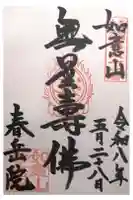 如意山
無量壽佛
春岳院
令和八年
五月二十八日